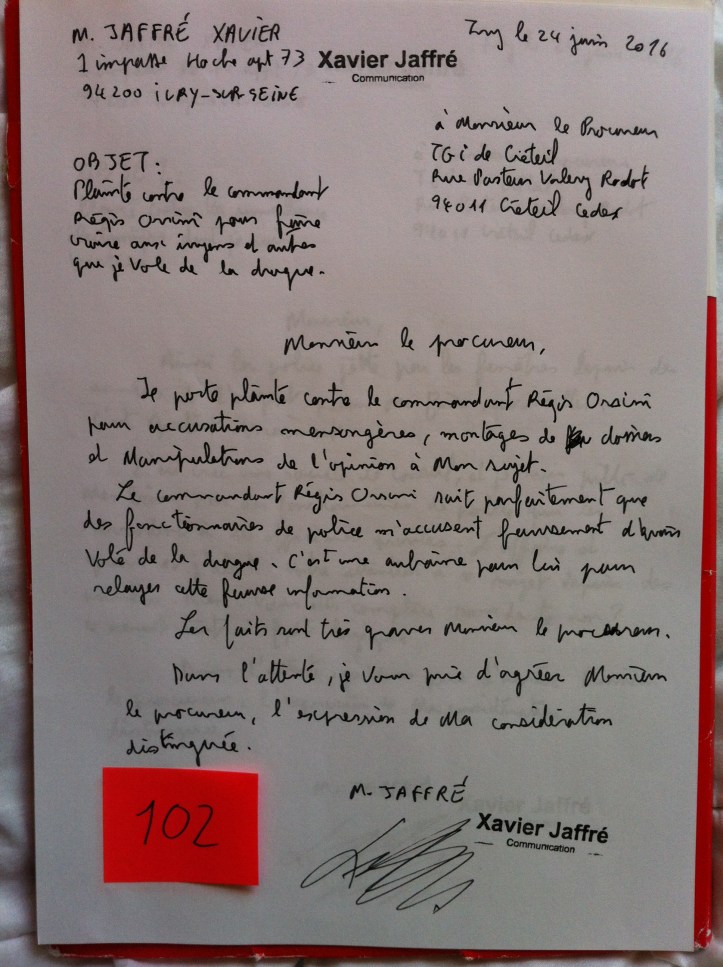 M. JAFFRÉ XAVIER
1 impasse Hoche apt 73
94200 IVRY-SUR-SEINE
Xavier Jaffré
Communication
Ivry le 24 juin 2016
à Monsieur le Procureur
TGI de Créteil
Rue Pasteur Valery Radot
94011 Créteil Cedex
OBJET:
Plainte contre le commandant
Régis Orsini pour faire
croire aux et autres
que je Vole de la drogue.
Monsieur le procureur,
Je porte plainte contre le commandant Régis Orsini
pour accusations mensongères, montages de dossiers
et Manipulations de l'opinion à Mon sujet.
Le commandant Régis Orsini sait parfaitement que
des fonctionnaires de police m'accusent faussement d'avoir
Volé de la drogue. C'est une aubaine pour lui pour
relayer cette fausse information.
Les faits sont très graves Monsieur le procureur.
Dans l'attente, je Vous prie d'agréer Monsieur
le procureur, l'expression de Ma considération
distinguée.
M. JAFFRÉ
Xavier Jaffré
Communication
102